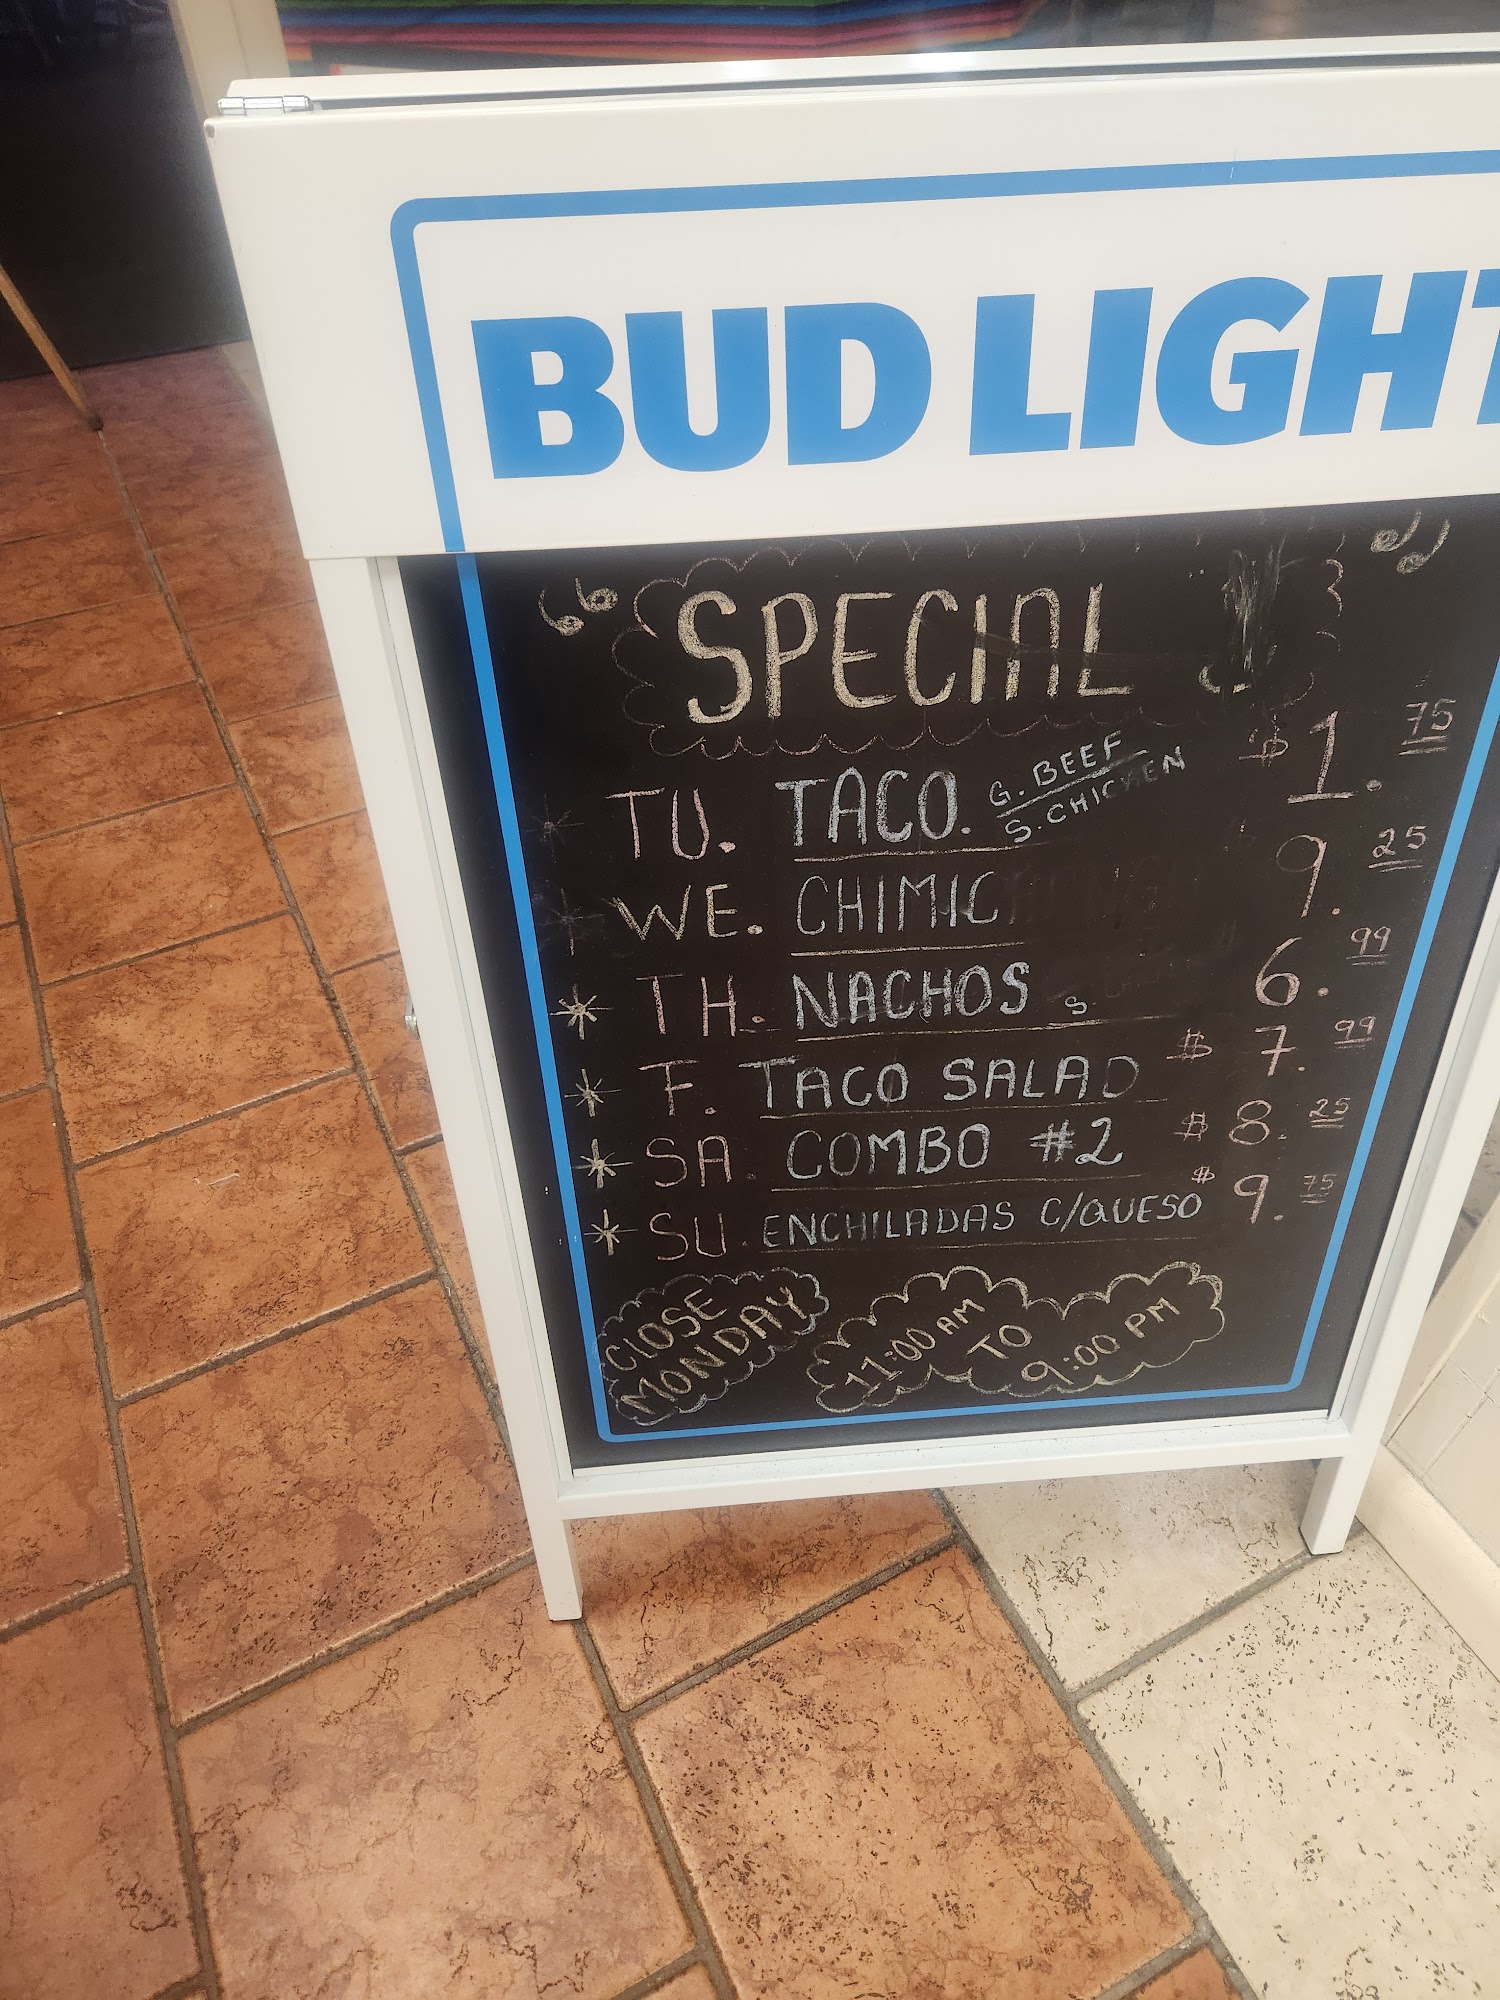 BUD LIGHT
SPECIAL
TU. TACO. G. BEEF $1.75
S. CHICKEN
WE. CHIMIC 9.25
TH. NACHOS S. 6.99
F. TACO SALAD $7.99
SA. COMBO #2 $8.25
SU. ENCHILADAS C/QUESO $9.75
CLOSE
MONDAY
11:00 AM
TO
9:00 PM